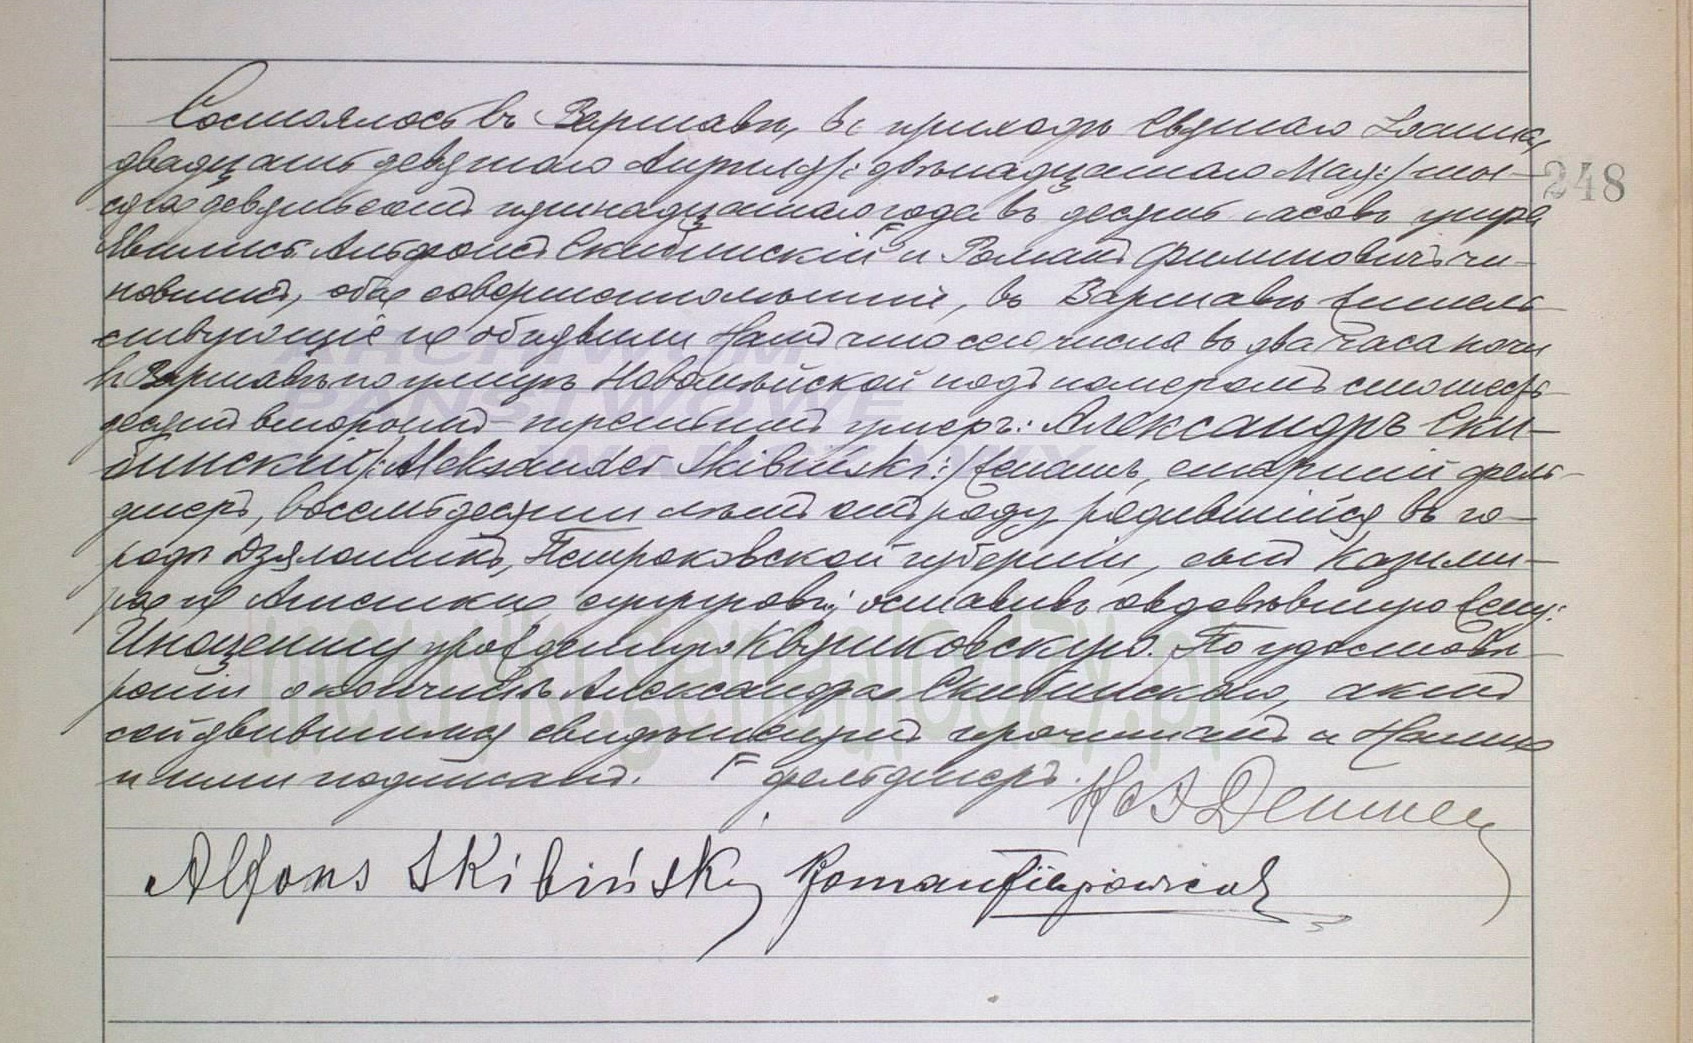 Состоялось въ Варшавѣ, въ приходѣ Святаго Іоанна,
двадцать девятаго Апрѣля /: двѣнадцатаго Мая :/ ты-
сяча девятьсотъ тринадцатаго года въ десять часовъ утра
248
Явились Альфонсъ Скибинскій F и Романъ Филиповичъ чи-
новникъ, оба совершеннолѣтніе, въ Варшавѣ житель-
ствующіе и объявили Намъ что сего числа въ два часа ночи
въ Варшавѣ по улицѣ Новомѣйской подъ номеромъ сто шесть-
десятъ вторымъ-третьимъ умеръ: Александръ Ски-
бинскій /: Aleksander Skibiński :/ женатъ, старшій фель-
дшеръ, восемьдесяти лѣтъ отъ роду, родившійся въ го-
родѣ Дзялошинѣ, Петроковской губерніи, сынъ Казими-
ра и супруговъ; оставивъ овдовѣвшую жену:
Иноценту урожденную Квятковскую. По удостовѣ-
реніи о кончинѣ Александра Скибинскаго, актъ
сей явившимся свидѣтелямъ прочитанъ и Нами
и ими подписанъ. F фельдшеръ.
Alfons Skibiński Roman Filipowicz
ARCHIWUM
PAŃSTWOWE
W WARSZAWIE
metryki.genealodzy.pl